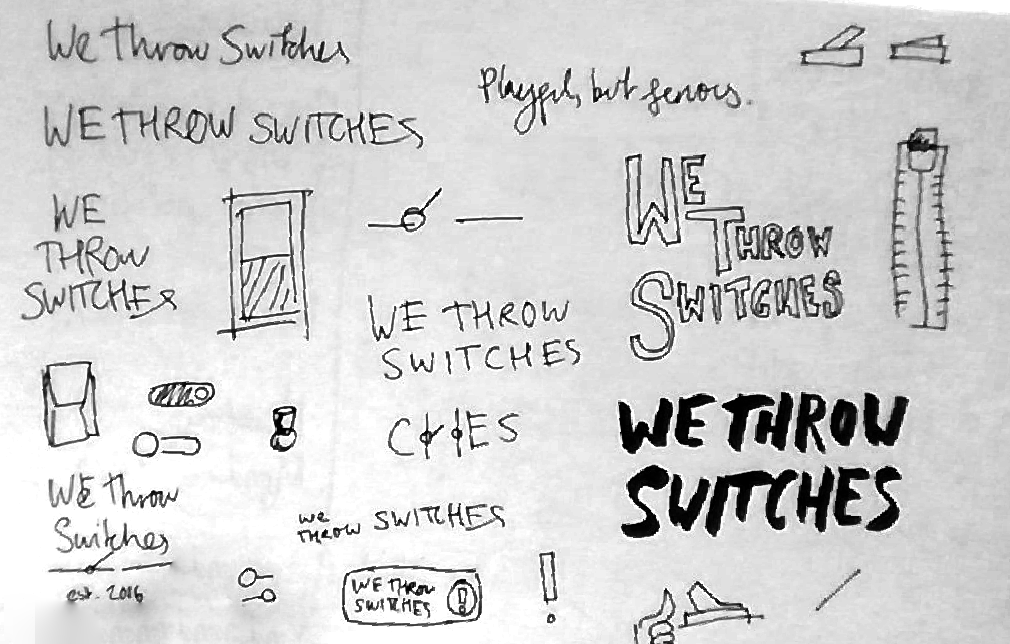 We Throw Switches
Playful, but serious.
WE THROW SWITCHES
WE
THROW
SWITCHES
WE
THROW
SWITCHES
WE THROW
SWITCHES
WE THROW
SWITCHES
We Throw
Switches
est. 2016
we
THROW SWITCHES
WE THROW
SWITCHES
!
!